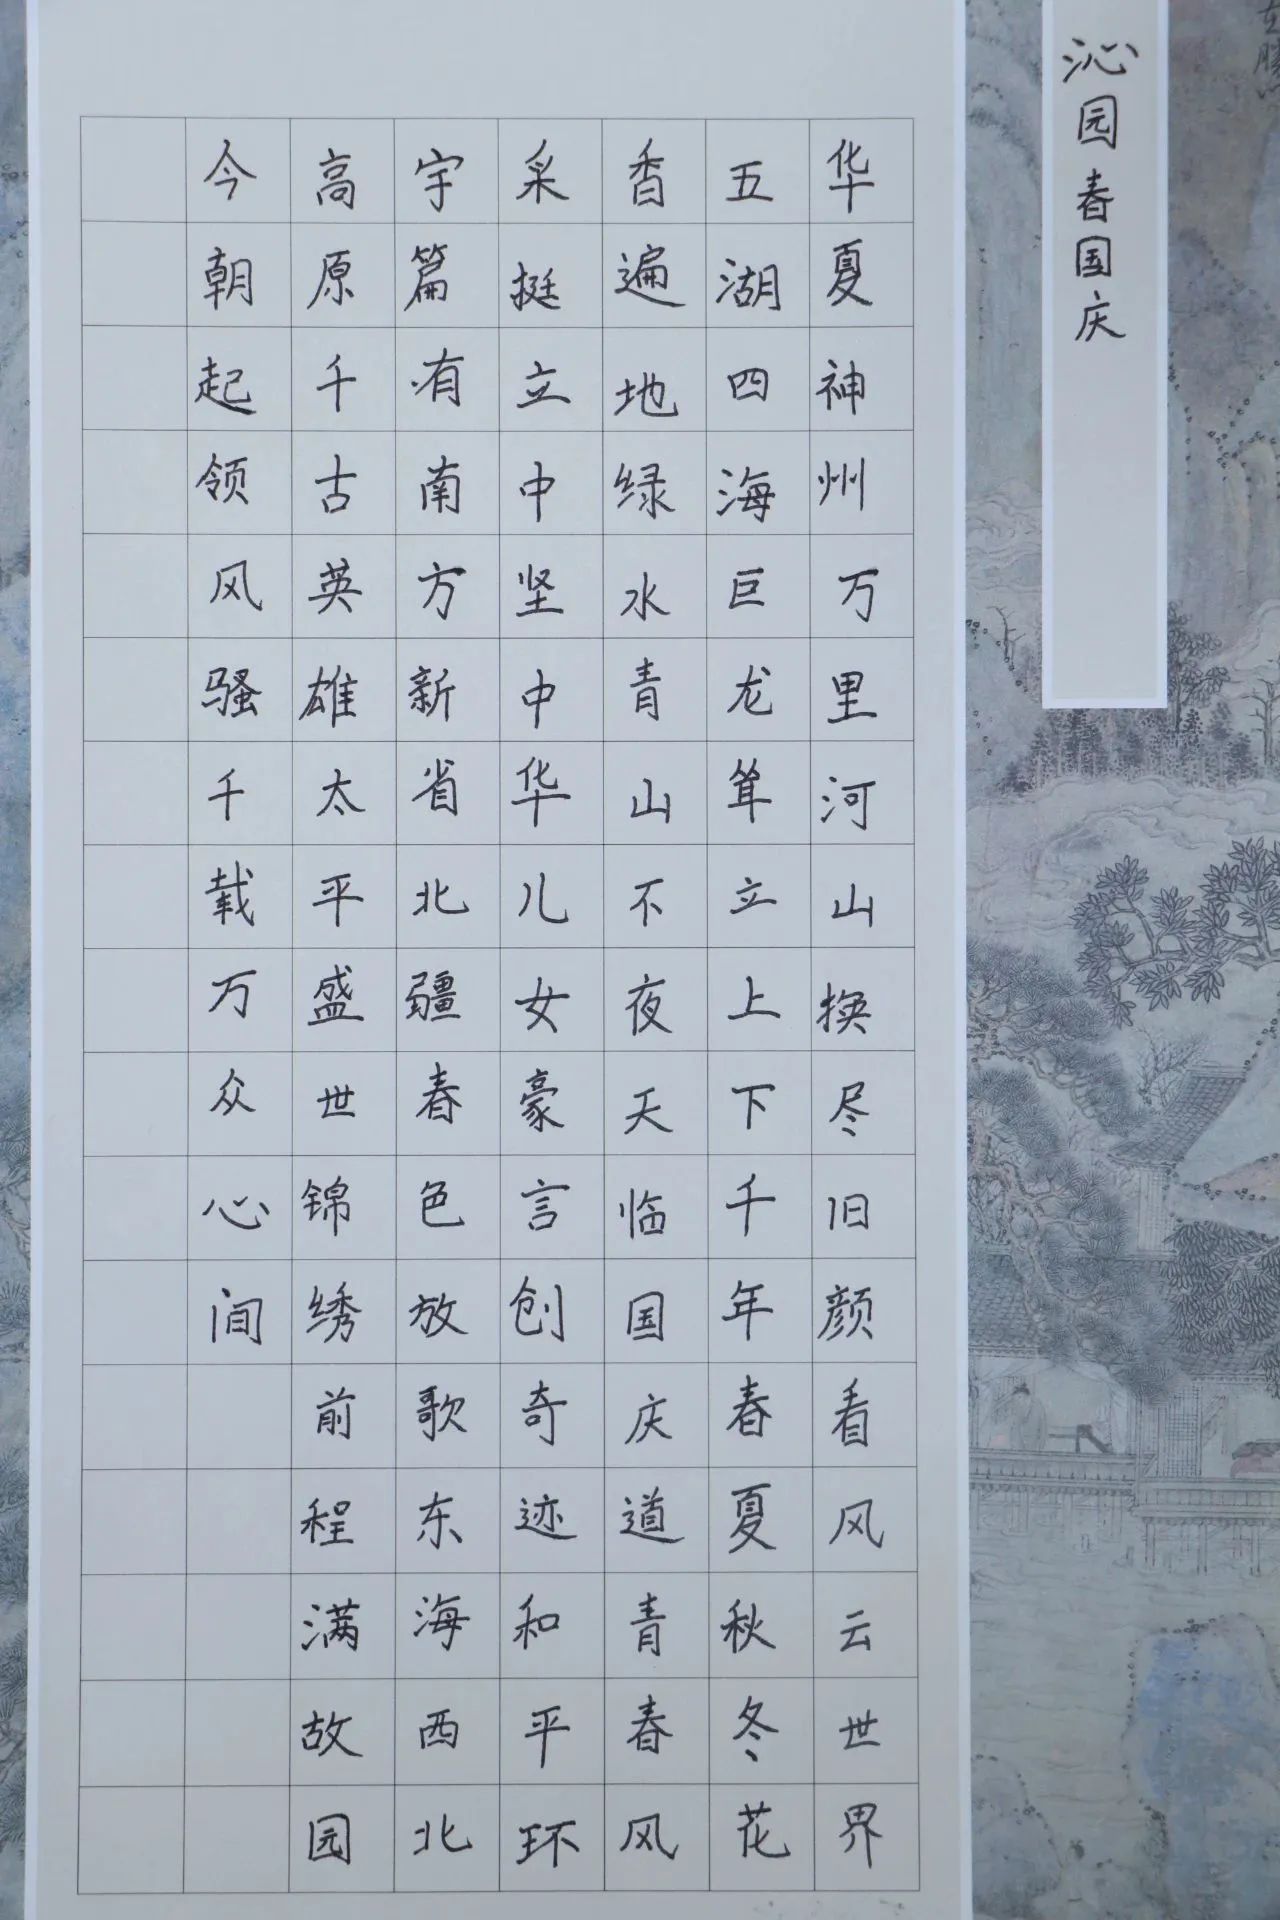 沁园春国庆
华夏神州万里河山换尽旧颜看风云世界
五湖四海巨龙耸立上下千年春夏秋冬花
香遍地绿水青山不夜天临国庆道青春风
采挺立中坚中华儿女豪言创奇迹和平环
宇篇有南方新省北疆春色放歌东海西北
高原千古英雄太平盛世锦绣前程满故园
今朝起领风骚千载万众心间